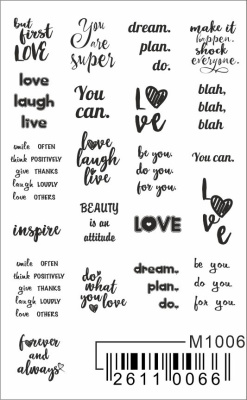 but
first
LOVE
You
are
super
dream.
plan.
do.
make it
happen.
shock
everyone.
love
laugh
live
You
can.
LOVE
blah,
blah,
blah
smile OFTEN
think POSITIVELY
give THANKS
laugh LOUDLY
love OTHERS
love
laugh
live
be you.
do you.
for you.
You can.
LOVE
inspire
BEAUTY
is an
attitude
LOVE
smile OFTEN
think POSITIVELY
give THANKS
laugh LOUDLY
love OTHERS
do
what
you
love
dream.
plan.
do.
be you.
do you.
for you.
forever
and
always
M1006
26110066